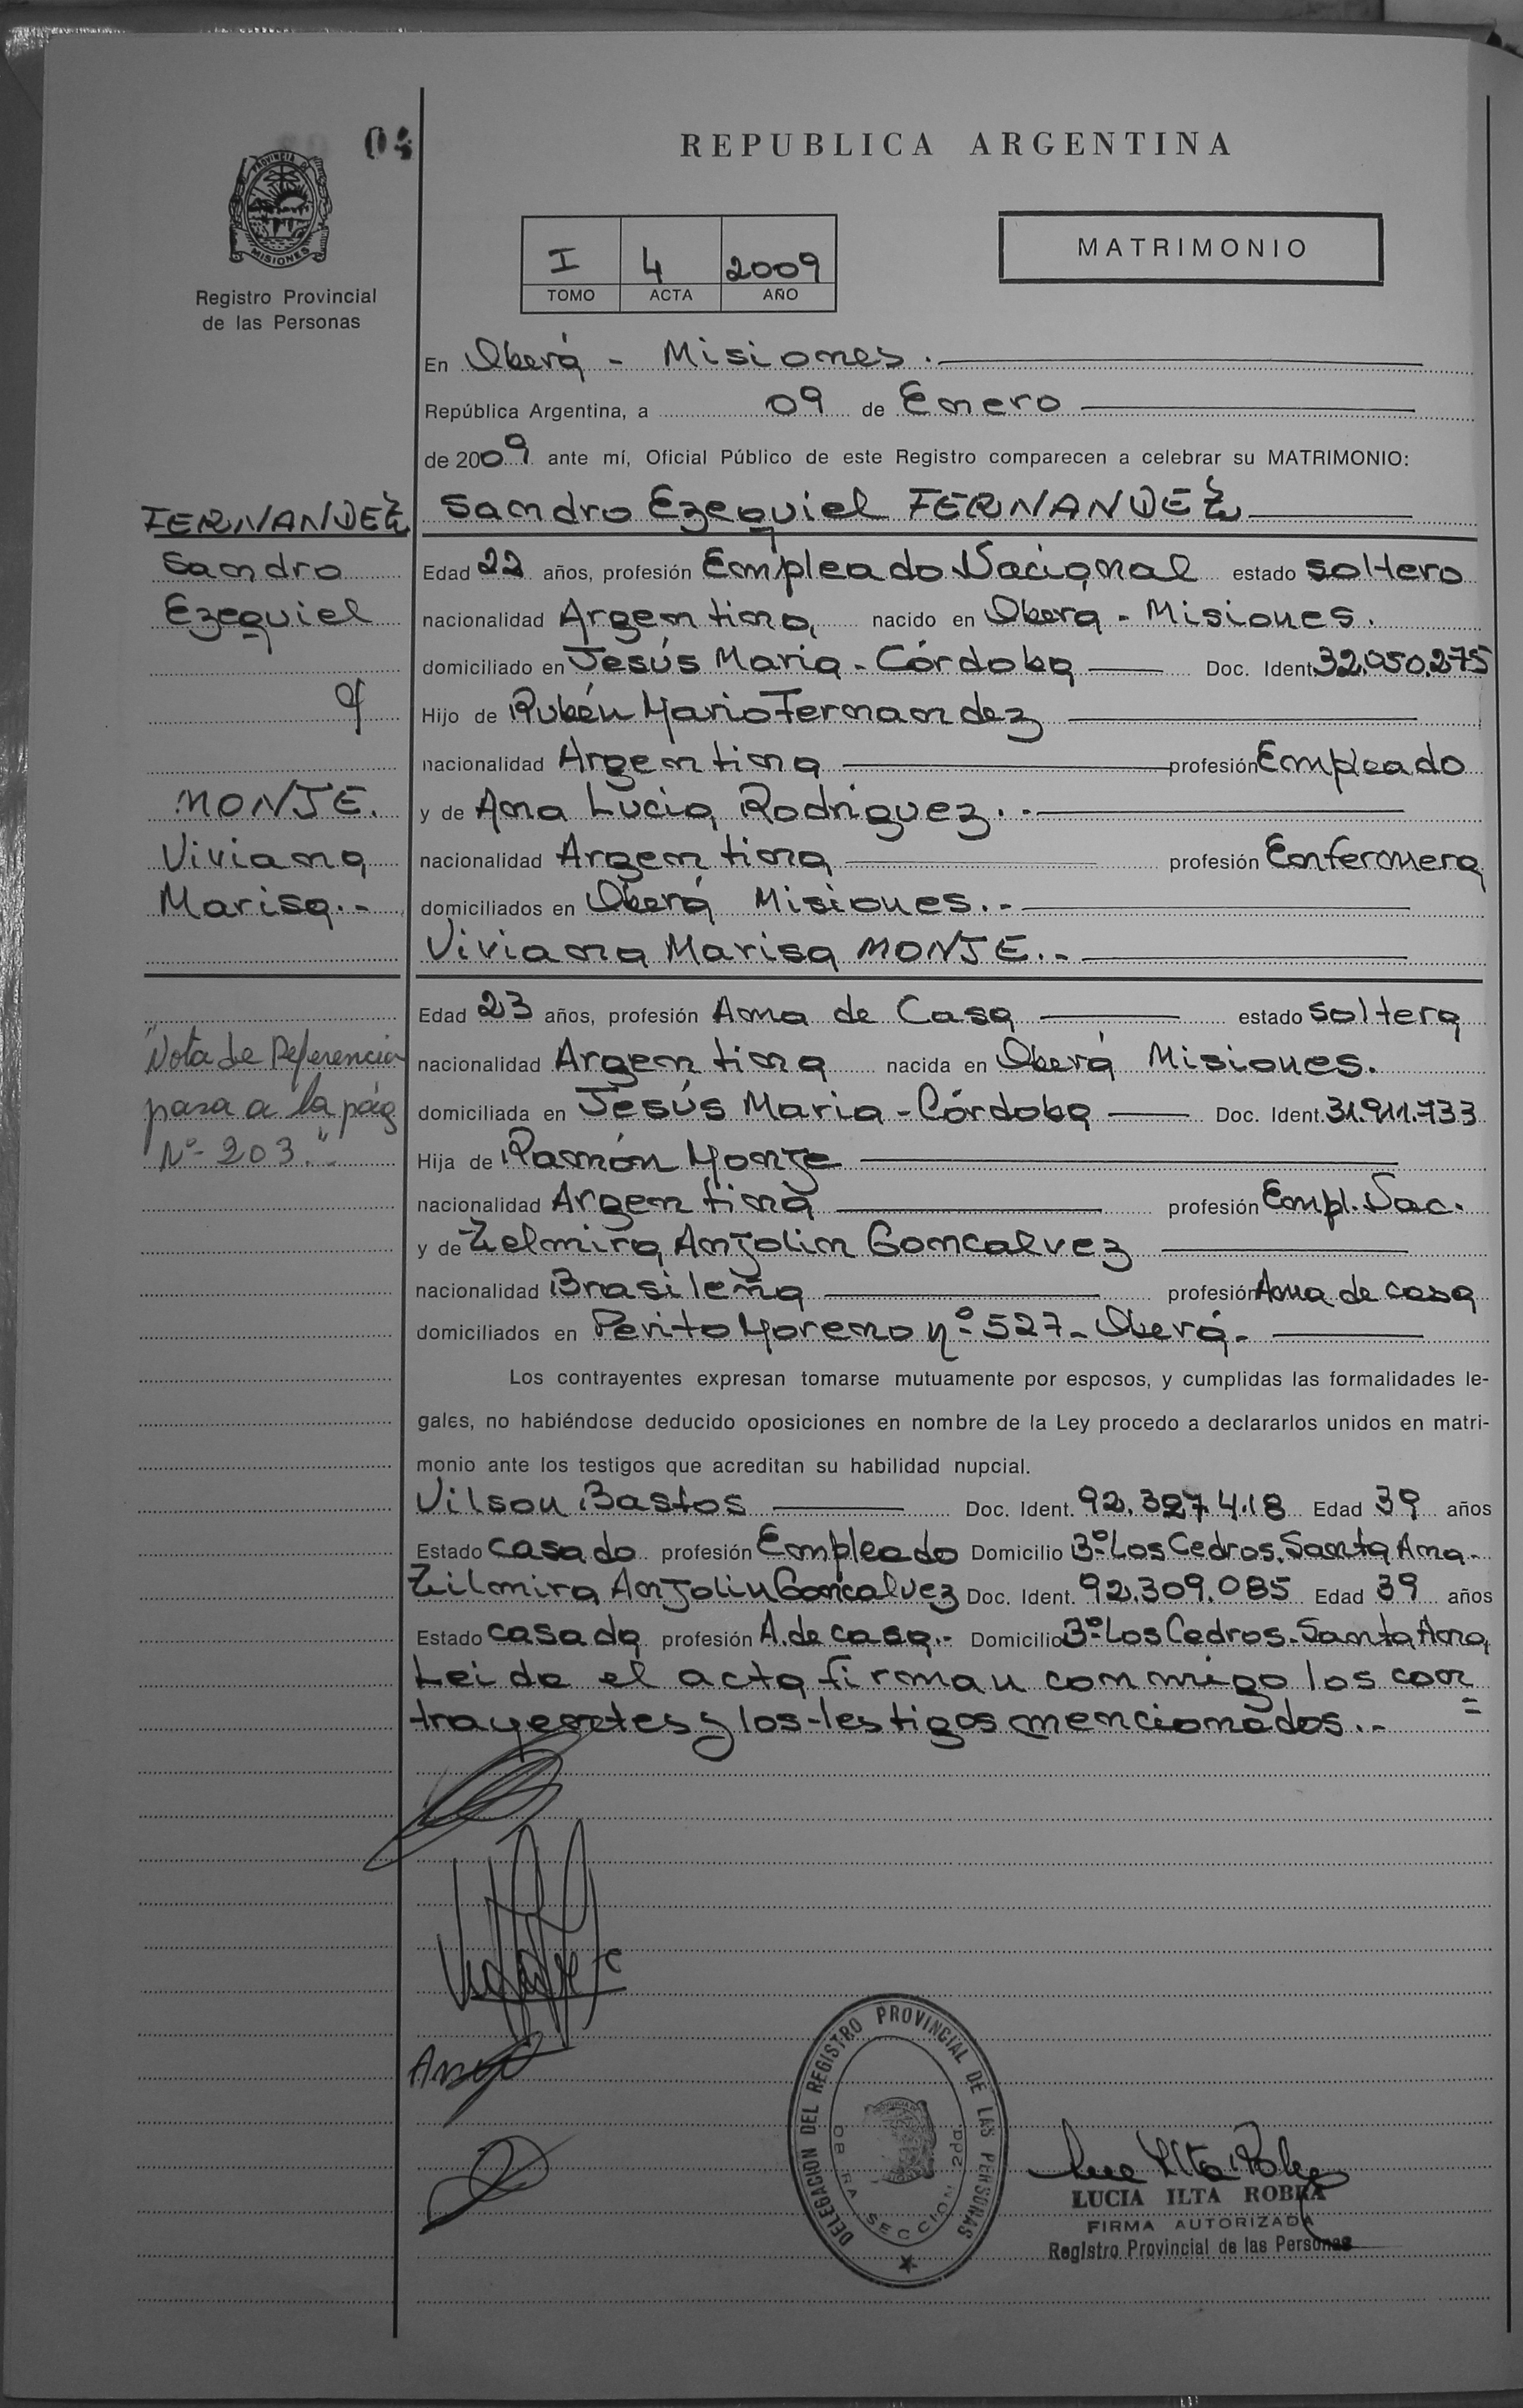 04
REPUBLICA ARGENTINA
PROVINCIA D
MISIONES
Registro Provincial
de las Personas
I 4 2009
TOMO ACTA AÑO
MATRIMONIO
En Oberá - Misiones.
República Argentina, a 09 de Enero
de 2009 ante mí, Oficial Público de este Registro comparecen a celebrar su MATRIMONIO:
FERNANDEZ
Sandro
Ezequiel
y
MONJE.
Viviana
Marisa.-
"Nota de Referencia
pasa a la pág
Nº 203."
Sandro Ezequiel FERNANDEZ
Edad 22 años, profesión Empleado Nacional estado soltero
nacionalidad Argentina nacido en Oberá - Misiones.
domiciliado en Jesús Maria - Córdoba Doc. Ident. 32.050.275
Hijo de Rubén Mario Fernandez
nacionalidad Argentina profesión Empleado
y de Ana Lucia Rodriguez.-
nacionalidad Argentina profesión Enfermera
domiciliados en Oberá Misiones.-
Viviana Marisa MONJE.-
Edad 23 años, profesión Ama de Casa estado soltera
nacionalidad Argentina nacida en Oberá Misiones.
domiciliada en Jesús Maria - Córdoba Doc. Ident. 31.911.733
Hija de Ramón Monje
nacionalidad Argentina profesión Empl. Nac.
y de Zelmira Anjolin Goncalvez
nacionalidad Brasileña profesión Ama de casa
domiciliados en Perito Moreno nº 527 - Oberá -
Los contrayentes expresan tomarse mutuamente por esposos, y cumplidas las formalidades le-
gales, no habiéndose deducido oposiciones en nombre de la Ley procedo a declararlos unidos en matri-
monio ante los testigos que acreditan su habilidad nupcial.
Vilson Bastos Doc. Ident. 92.327.418 Edad 39 años
Estado casado profesión Empleado Domicilio Bº Los Cedros. Santa Ana -
Zilmira Anjolin Goncalvez Doc. Ident. 92.309.085 Edad 39 años
Estado casada profesión A. de casa.- Domicilio Bº Los Cedros - Santa Ana
Leida el acta firman conmigo los con=
trayentes y los testigos mencionados.-
DELEGACION DEL REGISTRO PROVINCIAL DE LAS PERSONAS
OBERA SECCION 2da.
LUCIA ILTA ROBRA
FIRMA AUTORIZADA
Registro Provincial de las Personas